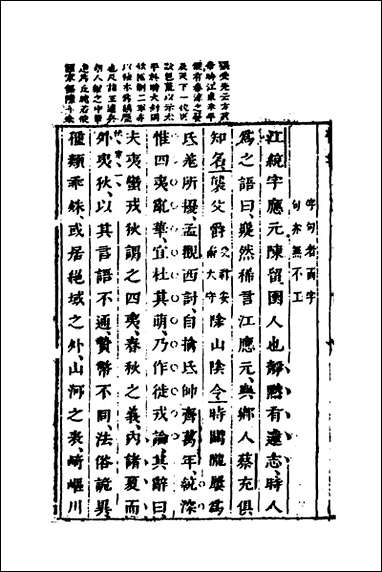 張受先云方武
帝時江東未平
字句者兩字
句亦無不工
江統字應元陳留圉人也靜默有遠志時人
為之語曰嶷然稀言江應元與鄉人蔡充俱
知名襲父爵父祚安南太守除山陰令時關隴屢為
氐羌所擾孟觀西討自擒氐帥齊萬年統深
惟四夷亂華宜杜其萌乃作徙戎論其辭曰
夫夷蠻戎狄謂之四夷春秋之義內諸夏而
外夷狄以其言語不通贄幣不同法俗詭異
種類乖殊或居絕域之外山河之表崎嶇川